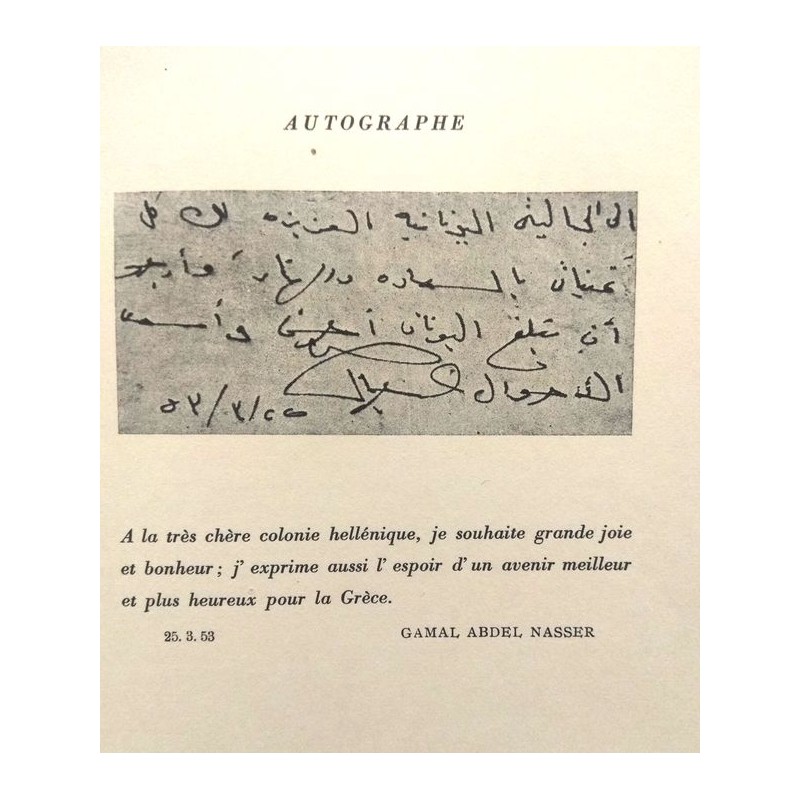 AUTOGRAPHE
الى الجالية اليونانية العزيزه لك كل
تمنياتى بالسعاده والهناء وأرجو
أن تبلغ اليونان أحسن وأسعد
الأحوال
٥٣/٣/٢٥
A la très chère colonie hellénique, je souhaite grande joie
et bonheur ; j' exprime aussi l' espoir d' un avenir meilleur
et plus heureux pour la Grèce.
25. 3. 53 GAMAL ABDEL NASSER